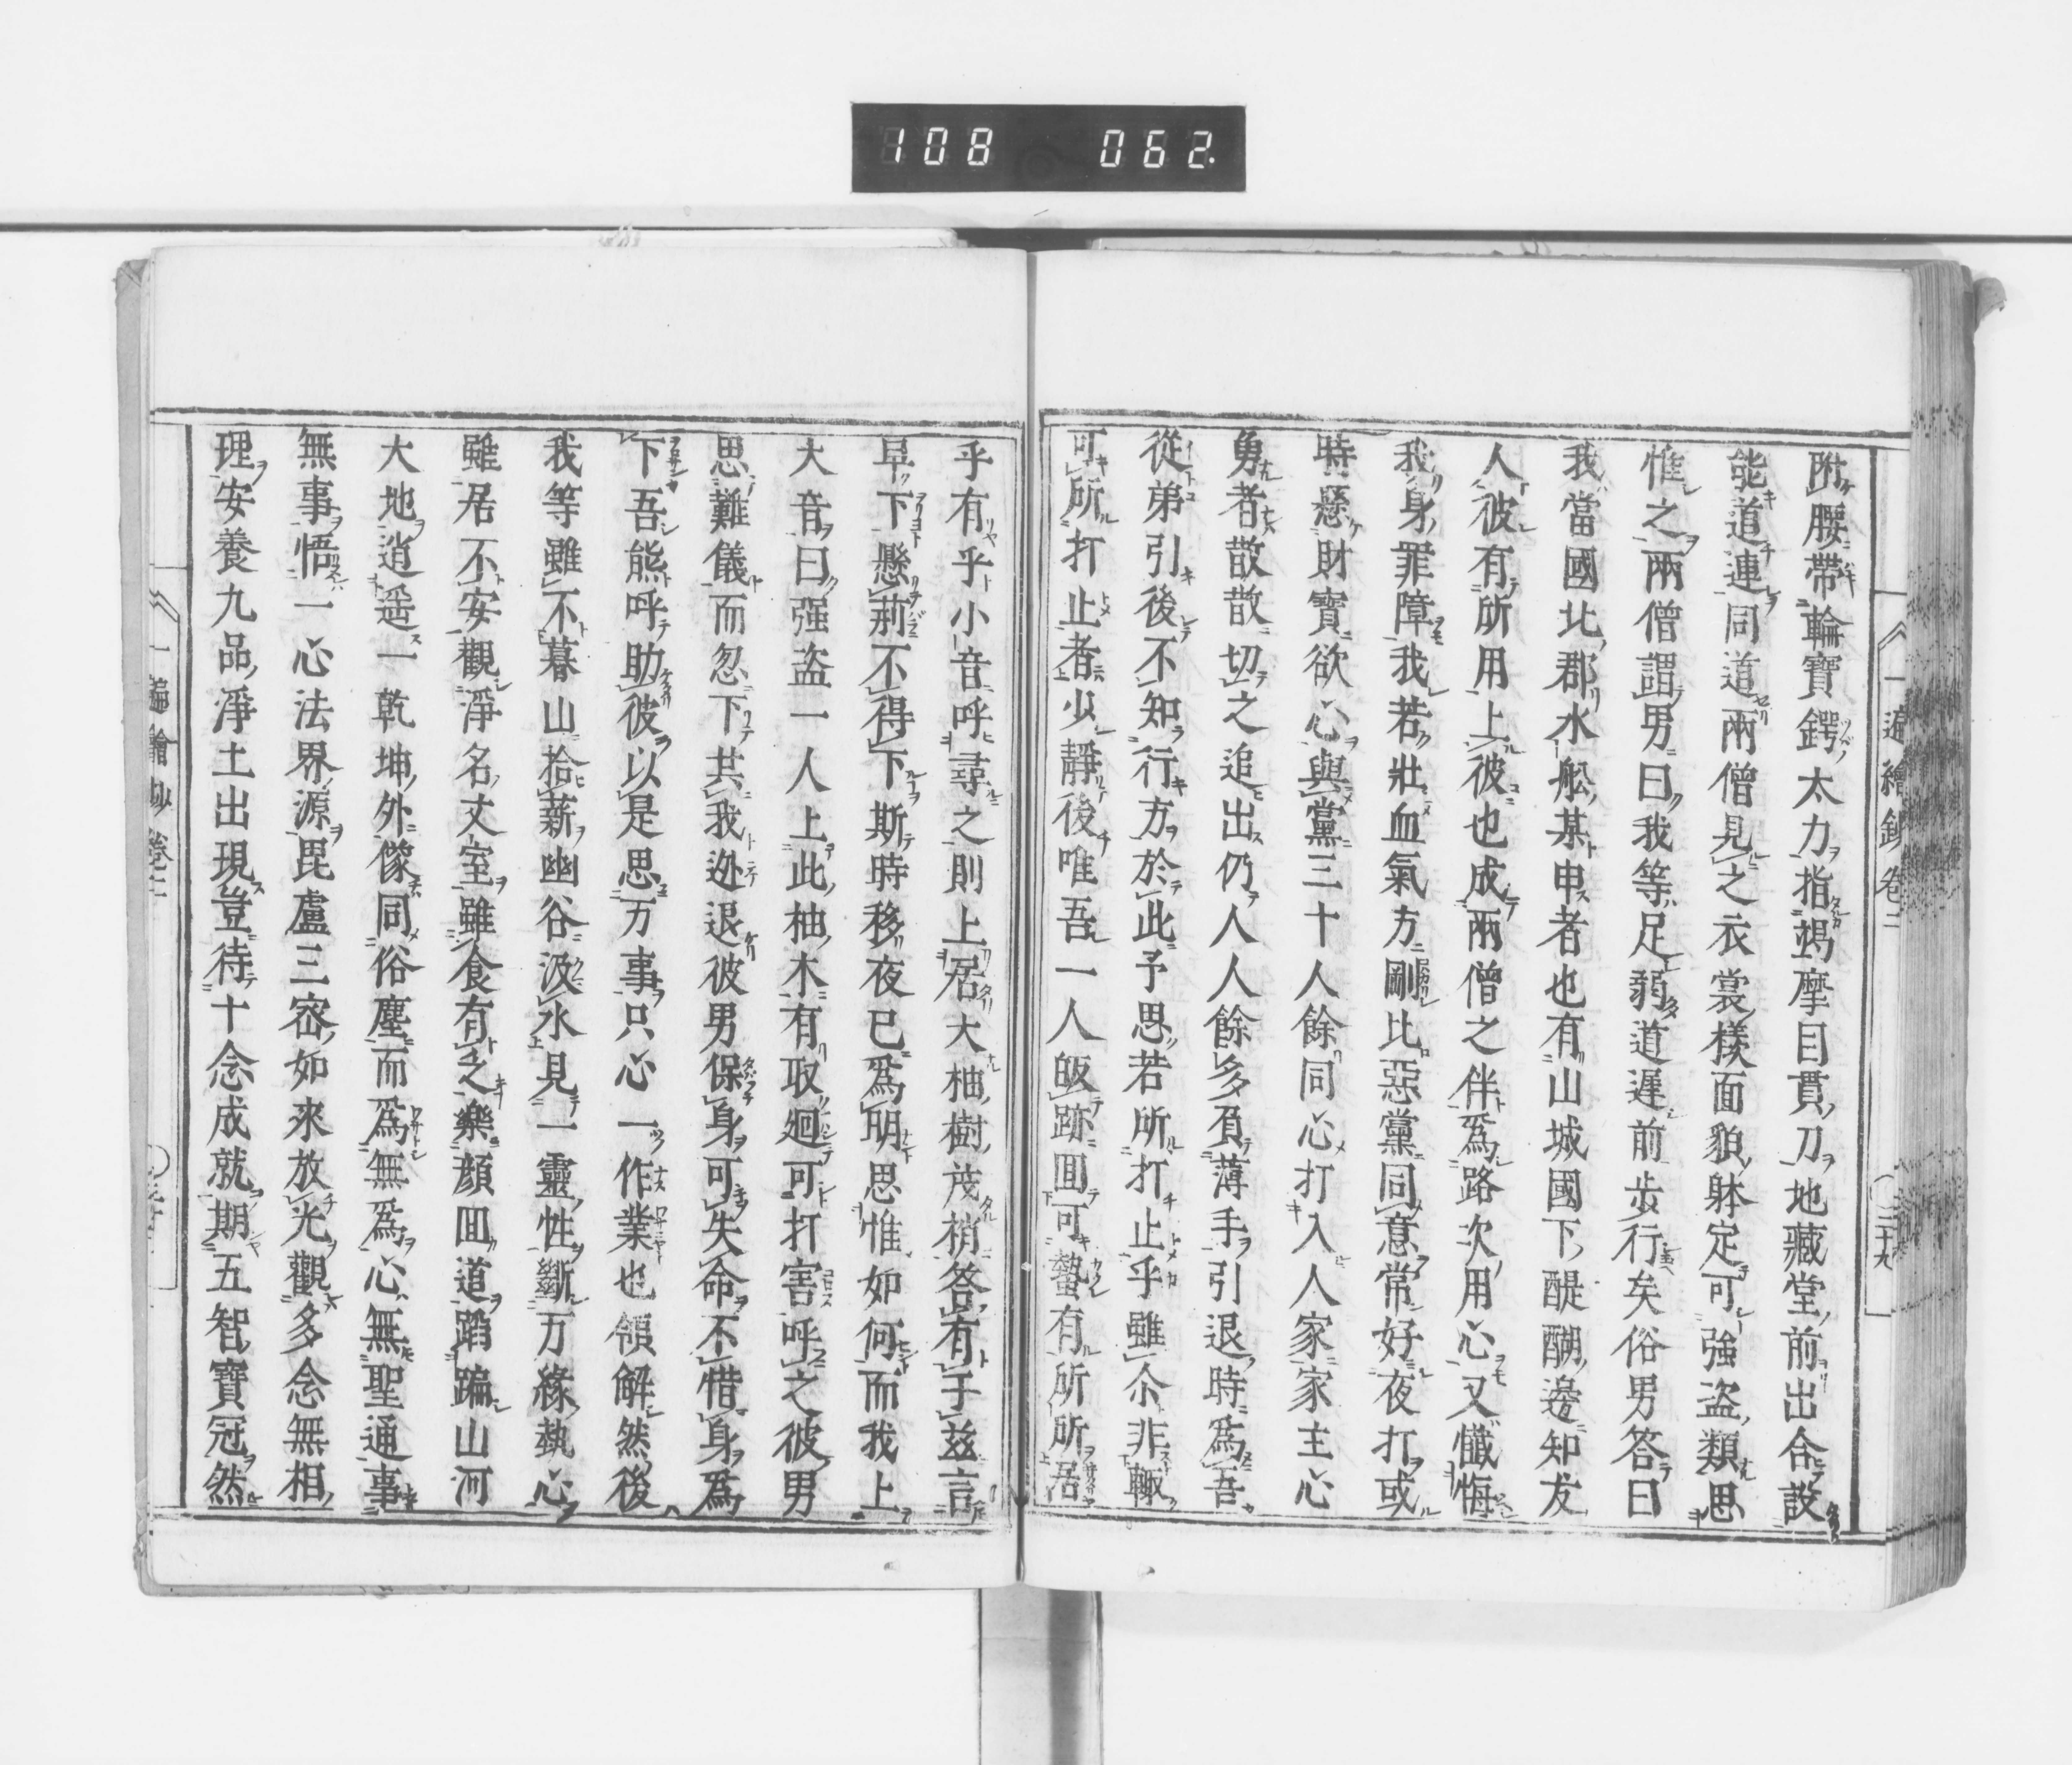 108 062
一遍繪鈔卷二
二十九
附腰帶輪寶鍔太力指羯摩目貫刀地藏堂前出合設
能道連同道兩僧見之衣裳樣面貌躰定可強盜類思
惟之兩僧謂男曰我等足弱道遲前步行矣俗男答曰
我當國北郡水舩某申者也有山城國下醍醐邊知友
人彼有所用上彼也成兩僧之伴爲路次用心又懺悔
我身罪障我若壯血氣方剛比惡黨同意常好夜打或
時懸財寶欲心與黨三十人餘同心打入人家家主心
勇者散散切之追出仍人人餘多負薄手引退時爲吾
從弟引後不知行方於此予思若所打止乎雖尒非轍
可所打止者少靜後唯吾一人皈跡囬可蟄有所所居
乎有乎小音呼尋之則上居大柚樹茂梢答有乎茲言
早下懸莿不得下斯時移夜已爲明思惟如何而我上
大音曰强盜一人上此柚木有取廻可打害呼之彼男
思難儀而忽下共我迯退彼男保身可失命不惜身爲
下吾熊呼助彼以是思万事只心一作業也領解然後
我等雖不暮山拾薪幽谷汲水見一靈性斷万緣執心
雖居不安觀淨名丈室雖食有之樂顔囬道蹈蹁山河
大地逍遥一乾坤外㒒同俗塵而爲無爲心無聖通事
無事悟一心法界源毘盧三密如來放光觀多念無相
理安養九品淨土出現豈待十念成就期五智寶冠然